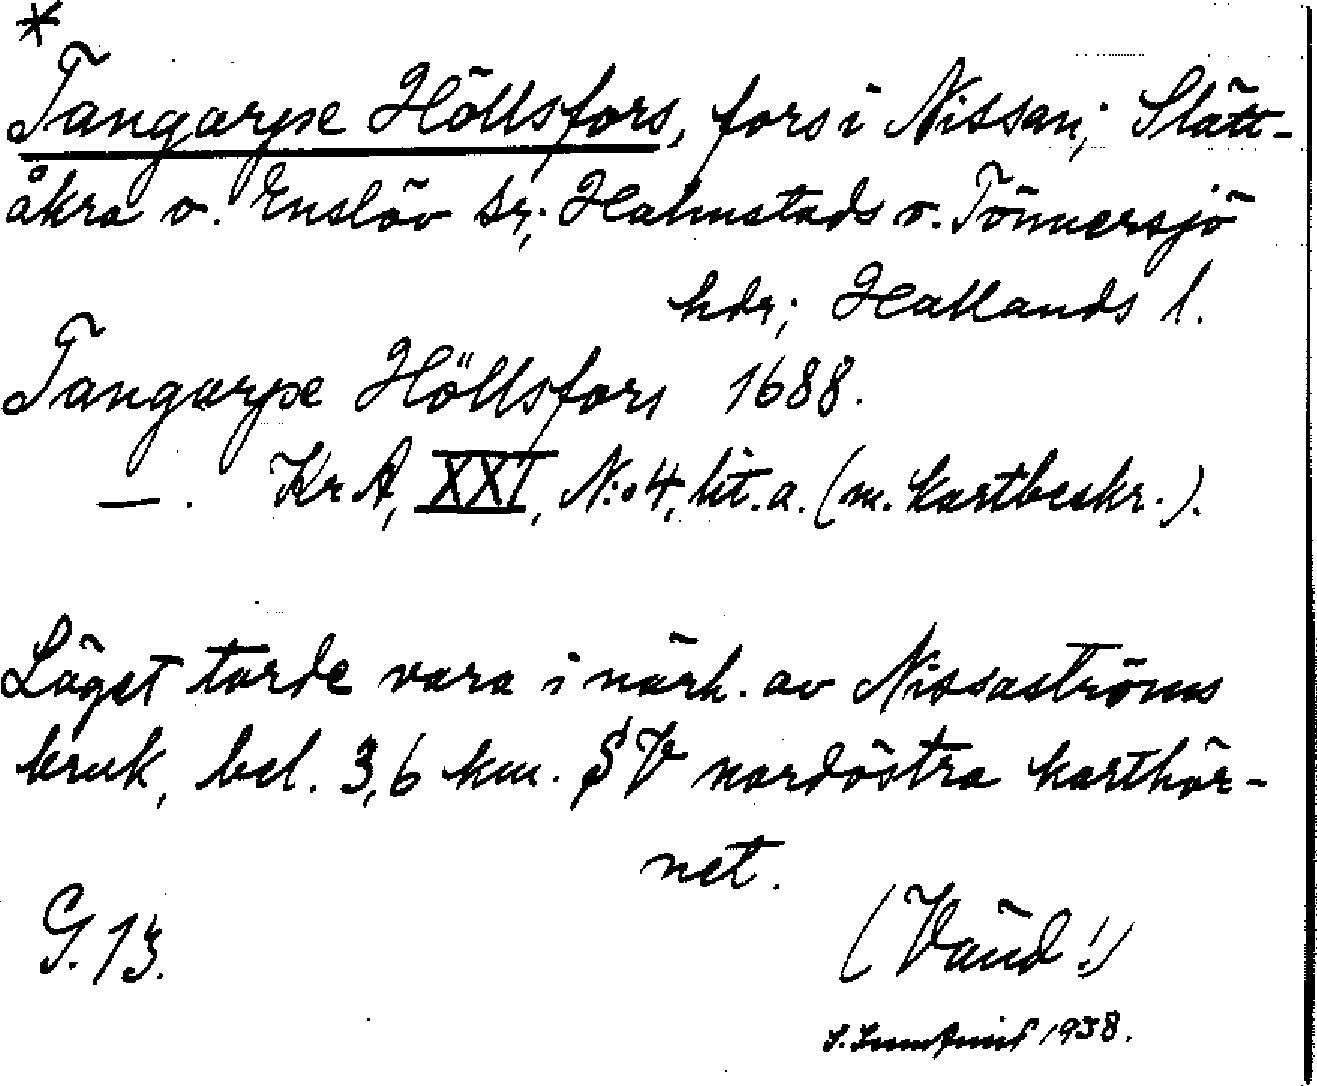 *
Tangarpe Höllsfors, fors i Nissan; Slätt-
åkra o. Enslöv sr; Halmstads o. Tönnersjö
hdr; Hallands l.
Tangarpe Höllsfors 1688.
— . Kr A, XXI, N:o 4, lit. a. (m. kartbeskr.).
Läget torde vara i närh. av Nissaströms
bruk, bel. 3,6 km. SV nordöstra karthör-
net.
G. 13.
(Vänd!)
1938.